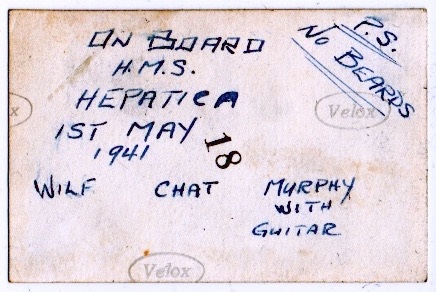 ON BOARD
H.M.S.
HEPATICA
1ST MAY
1941
18
WILF CHAT MURPHY
WITH
GUITAR
P.S.
NO BEARDS
Velox
Velox
x